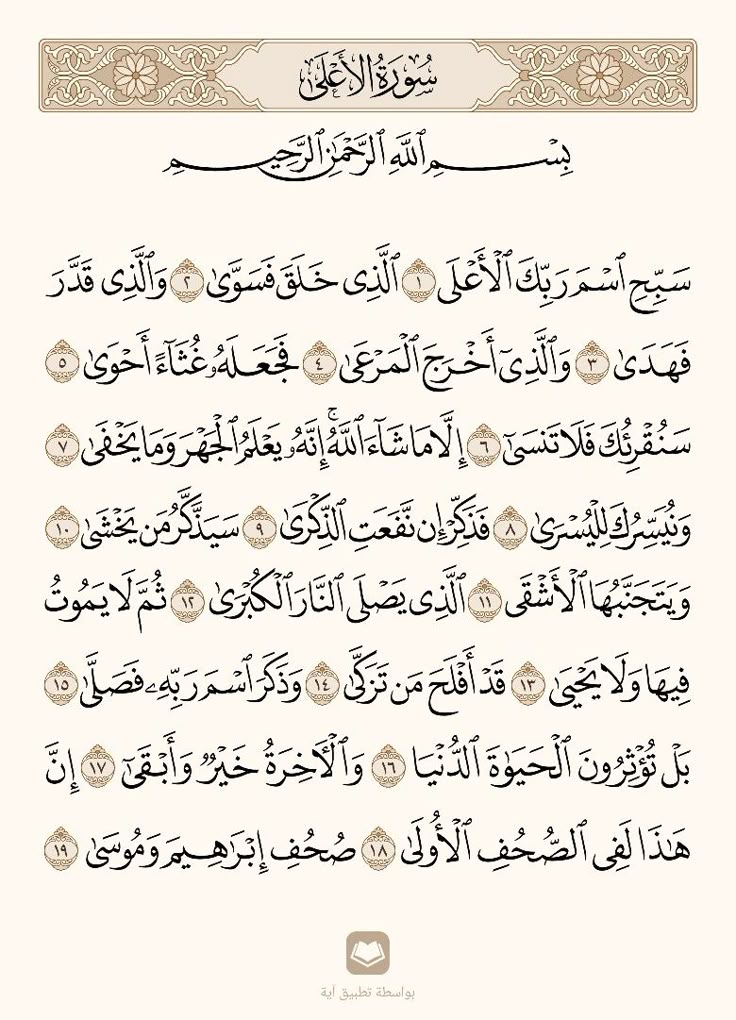 سُورَةُ الأَعْلَىٰ
بِسْمِ ٱللَّهِ ٱلرَّحْمَٰنِ ٱلرَّحِيمِ
سَبِّحِ ٱسْمَ رَبِّكَ ٱلْأَعْلَى ١ ٱلَّذِى خَلَقَ فَسَوَّىٰ ٢ وَٱلَّذِى قَدَّرَ
فَهَدَىٰ ٣ وَٱلَّذِىٓ أَخْرَجَ ٱلْمَرْعَىٰ ٤ فَجَعَلَهُۥ غُثَآءً أَحْوَىٰ ٥
سَنُقْرِئُكَ فَلَا تَنسَىٰٓ ٦ إِلَّا مَا شَآءَ ٱللَّهُ ۚ إِنَّهُۥ يَعْلَمُ ٱلْجَهْرَ وَمَا يَخْفَىٰ ٧
وَنُيَسِّرُكَ لِلْيُسْرَىٰ ٨ فَذَكِّرْ إِن نَّفَعَتِ ٱلذِّكْرَىٰ ٩ سَيَذَّكَّرُ مَن يَخْشَىٰ ١٠
وَيَتَجَنَّبُهَا ٱلْأَشْقَى ١١ ٱلَّذِى يَصْلَى ٱلنَّارَ ٱلْكُبْرَىٰ ١٢ ثُمَّ لَا يَمُوتُ
فِيهَا وَلَا يَحْيَىٰ ١٣ قَدْ أَفْلَحَ مَن تَزَكَّىٰ ١٤ وَذَكَرَ ٱسْمَ رَبِّهِۦ فَصَلَّىٰ ١٥
بَلْ تُؤْثِرُونَ ٱلْحَيَوٰةَ ٱلدُّنْيَا ١٦ وَٱلْـَٔاخِرَةُ خَيْرٌ وَأَبْقَىٰٓ ١٧ إِنَّ
هَٰذَا لَفِى ٱلصُّحُفِ ٱلْأُولَىٰ ١٨ صُحُفِ إِبْرَٰهِيمَ وَمُوسَىٰ ١٩
بواسطة تطبيق آية